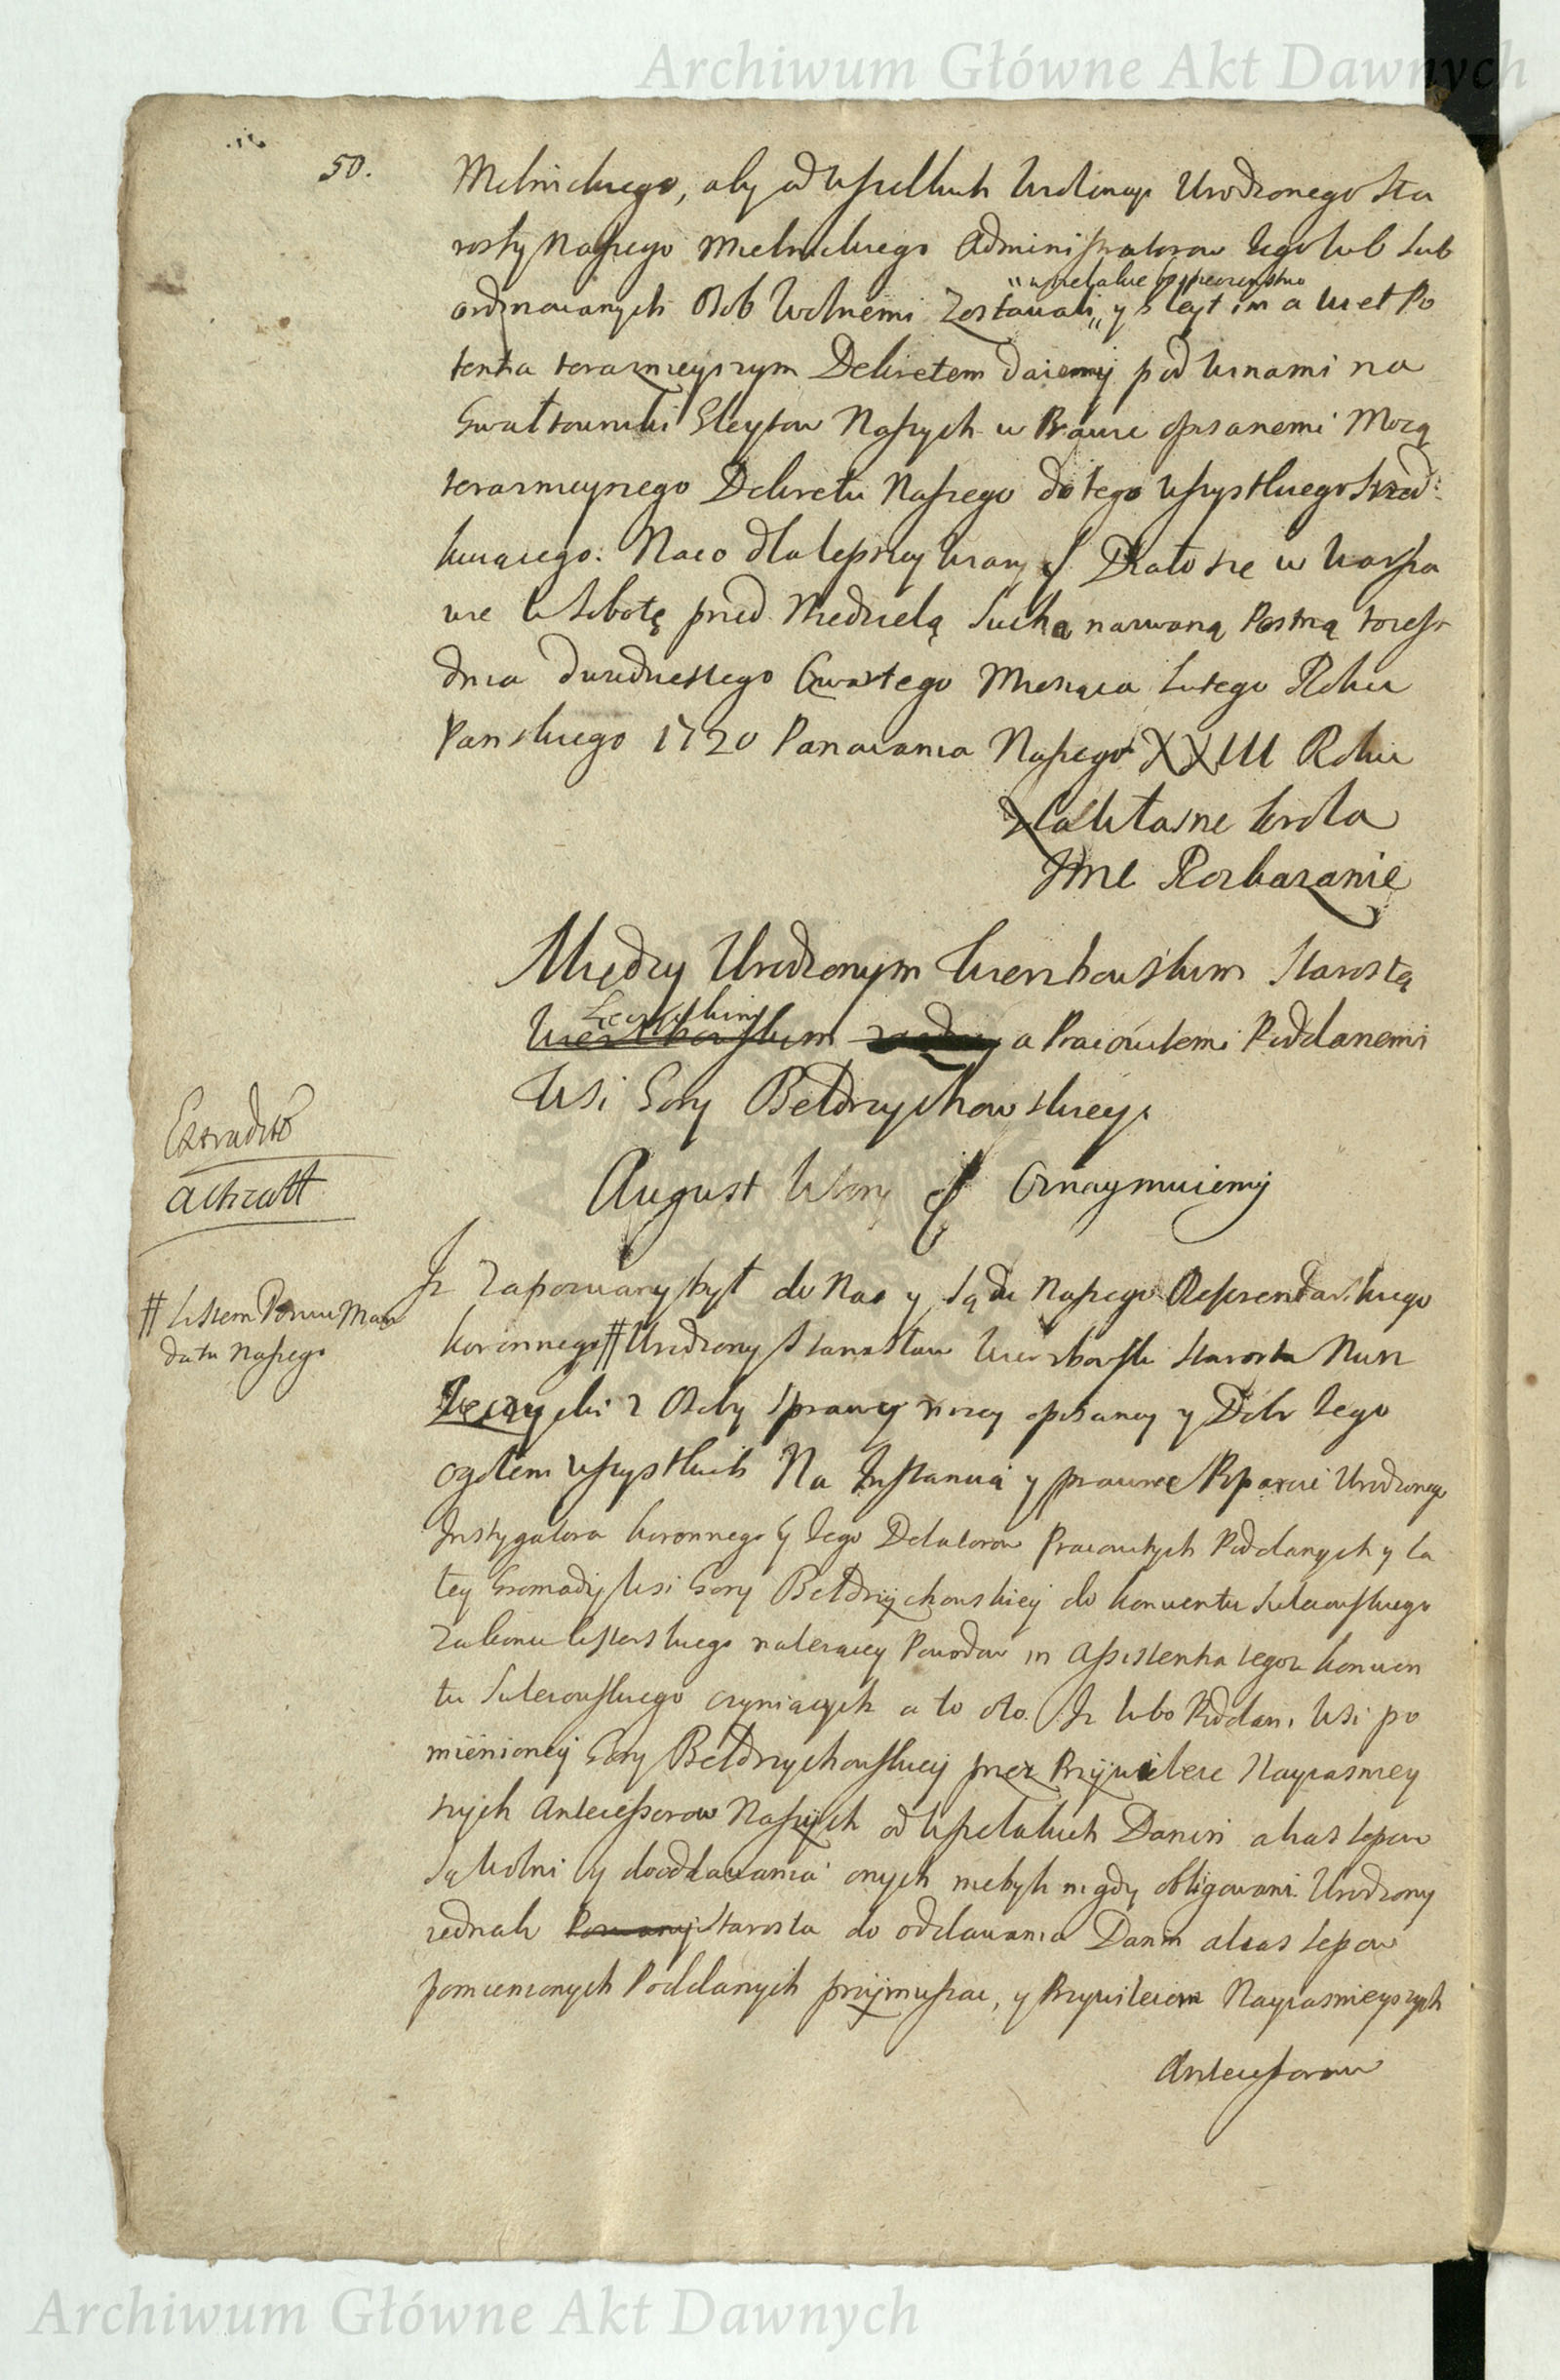 Archiwum Główne Akt Dawnych
50.
Melnickiego, aby od wszelkich Violencyi Urodzonego Sta
rosty Naszego Mielnickiego Administratorow Iego lub Sub
" wszelakie bespieczenstwo
ordynowanych Osob Wolnemi Zostawali " y Gleyt im a Iuris et Po
tentia teraznieyszym Dekretem daiemy pod winami na
Gwałtowniki Gleytow Naszych w Prawie opisanemi Mocą
teraznieyszego Dekretu Naszego do tego wszystkiego
. Na co dla lepszey Wiary &c Działo się w Warsza
wie w Sobotę przed Niedzielą Sucha nazwaną Postną to iest
dnia dwudziestego Czwartego Miesiąca Lutego Roku
Panskiego 1720 Panowania Naszego XXIII Roku
Na Własne Krola
Jme Roskazanie
Między Urodzonym Wierzbowskim Starostą
Łęczyckim
Wierzbowskim a Pracowitemi Poddanemi
Wsi Gory Bełdrzychowskiey.
August Wtory &c Oznaymuiemy
Extraditũ
# Listem Pozwu Man
datu Naszego
Iz Zapozwany był do Nas y Sądu Naszego Referendarskiego
koronnego # Urodzony Stanisław Wierzbowski Starosta Nasz
Łęczycki z Osoby Sprawy nizey opisaney y Dobr Iego
ogołem wszystkich Na Instancią y prawne Poparcie Urodzonego
Instygatora koronnego y Iego Delatorow Pracowitych Poddanych y ca
łey Gromady Wsi Gory Bełdrzychowskiey do konwentu Suleiowskiego
Zakonu Cysterskiego nalezącey Powodow in Assistentia tegoz konwen
tu Suleiowskiego czyniących a to oto. Iz lubo Poddani Wsi po
mienioney Gory Bełdrzychowskiey przez Przywileie Nayiasniey
szych Antecessorow Naszych od wszelakich Danin alias Sepow
są wolni y do oddawania onych niebyli nigdy obligowani. Urodzony
iednak Pozwany Starosta do oddawania Danin alias Sepow
pomienionych Poddanych przymuszac, y Przywileiom Nayiasnieyszych
Antecessorow
Archiwum Główne Akt Dawnych